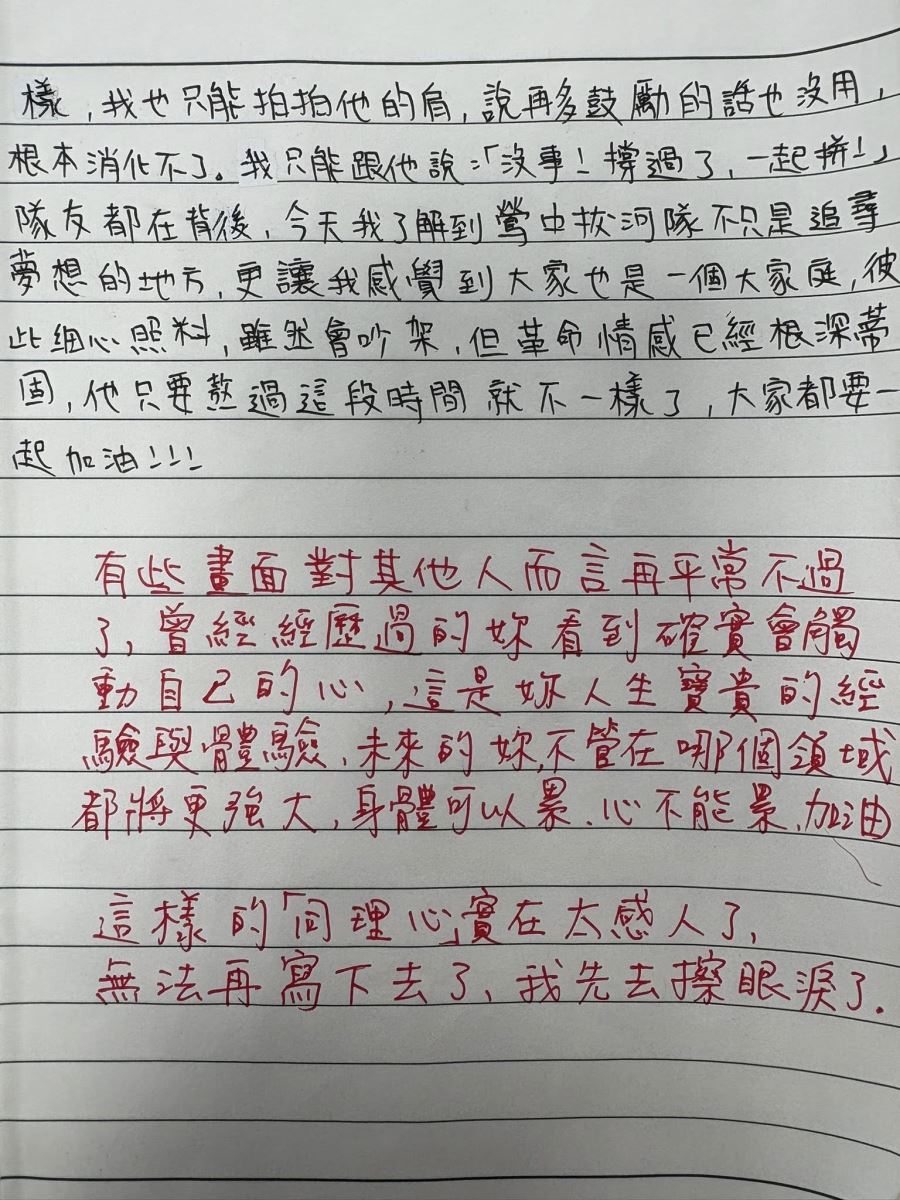 樣,我也只能拍拍他的肩,說再多鼓勵的話也沒用,
根本消化不了。我只能跟他說:「沒事!撐過了,一起拚!」
隊友都在背後,今天我了解到鶯中拔河隊不只是追尋
夢想的地方,更讓我感覺到大家也是一個大家庭,彼
此細心照料,雖然會吵架,但革命情感已經根深蒂
固,他只要熬過這段時間就不一樣了,大家都要一
起加油!!!
有些畫面對其他人而言再平常不過
了,曾經經歷過的妳看到確實會觸
動自己的心,這是妳人生寶貴的經
驗與體驗,未來的妳,不管在哪個領域
都將更強大,身體可以累、心不能累,加油
這樣的「同理心」實在太感人了,
無法再寫下去了、我先去擦眼淚了.